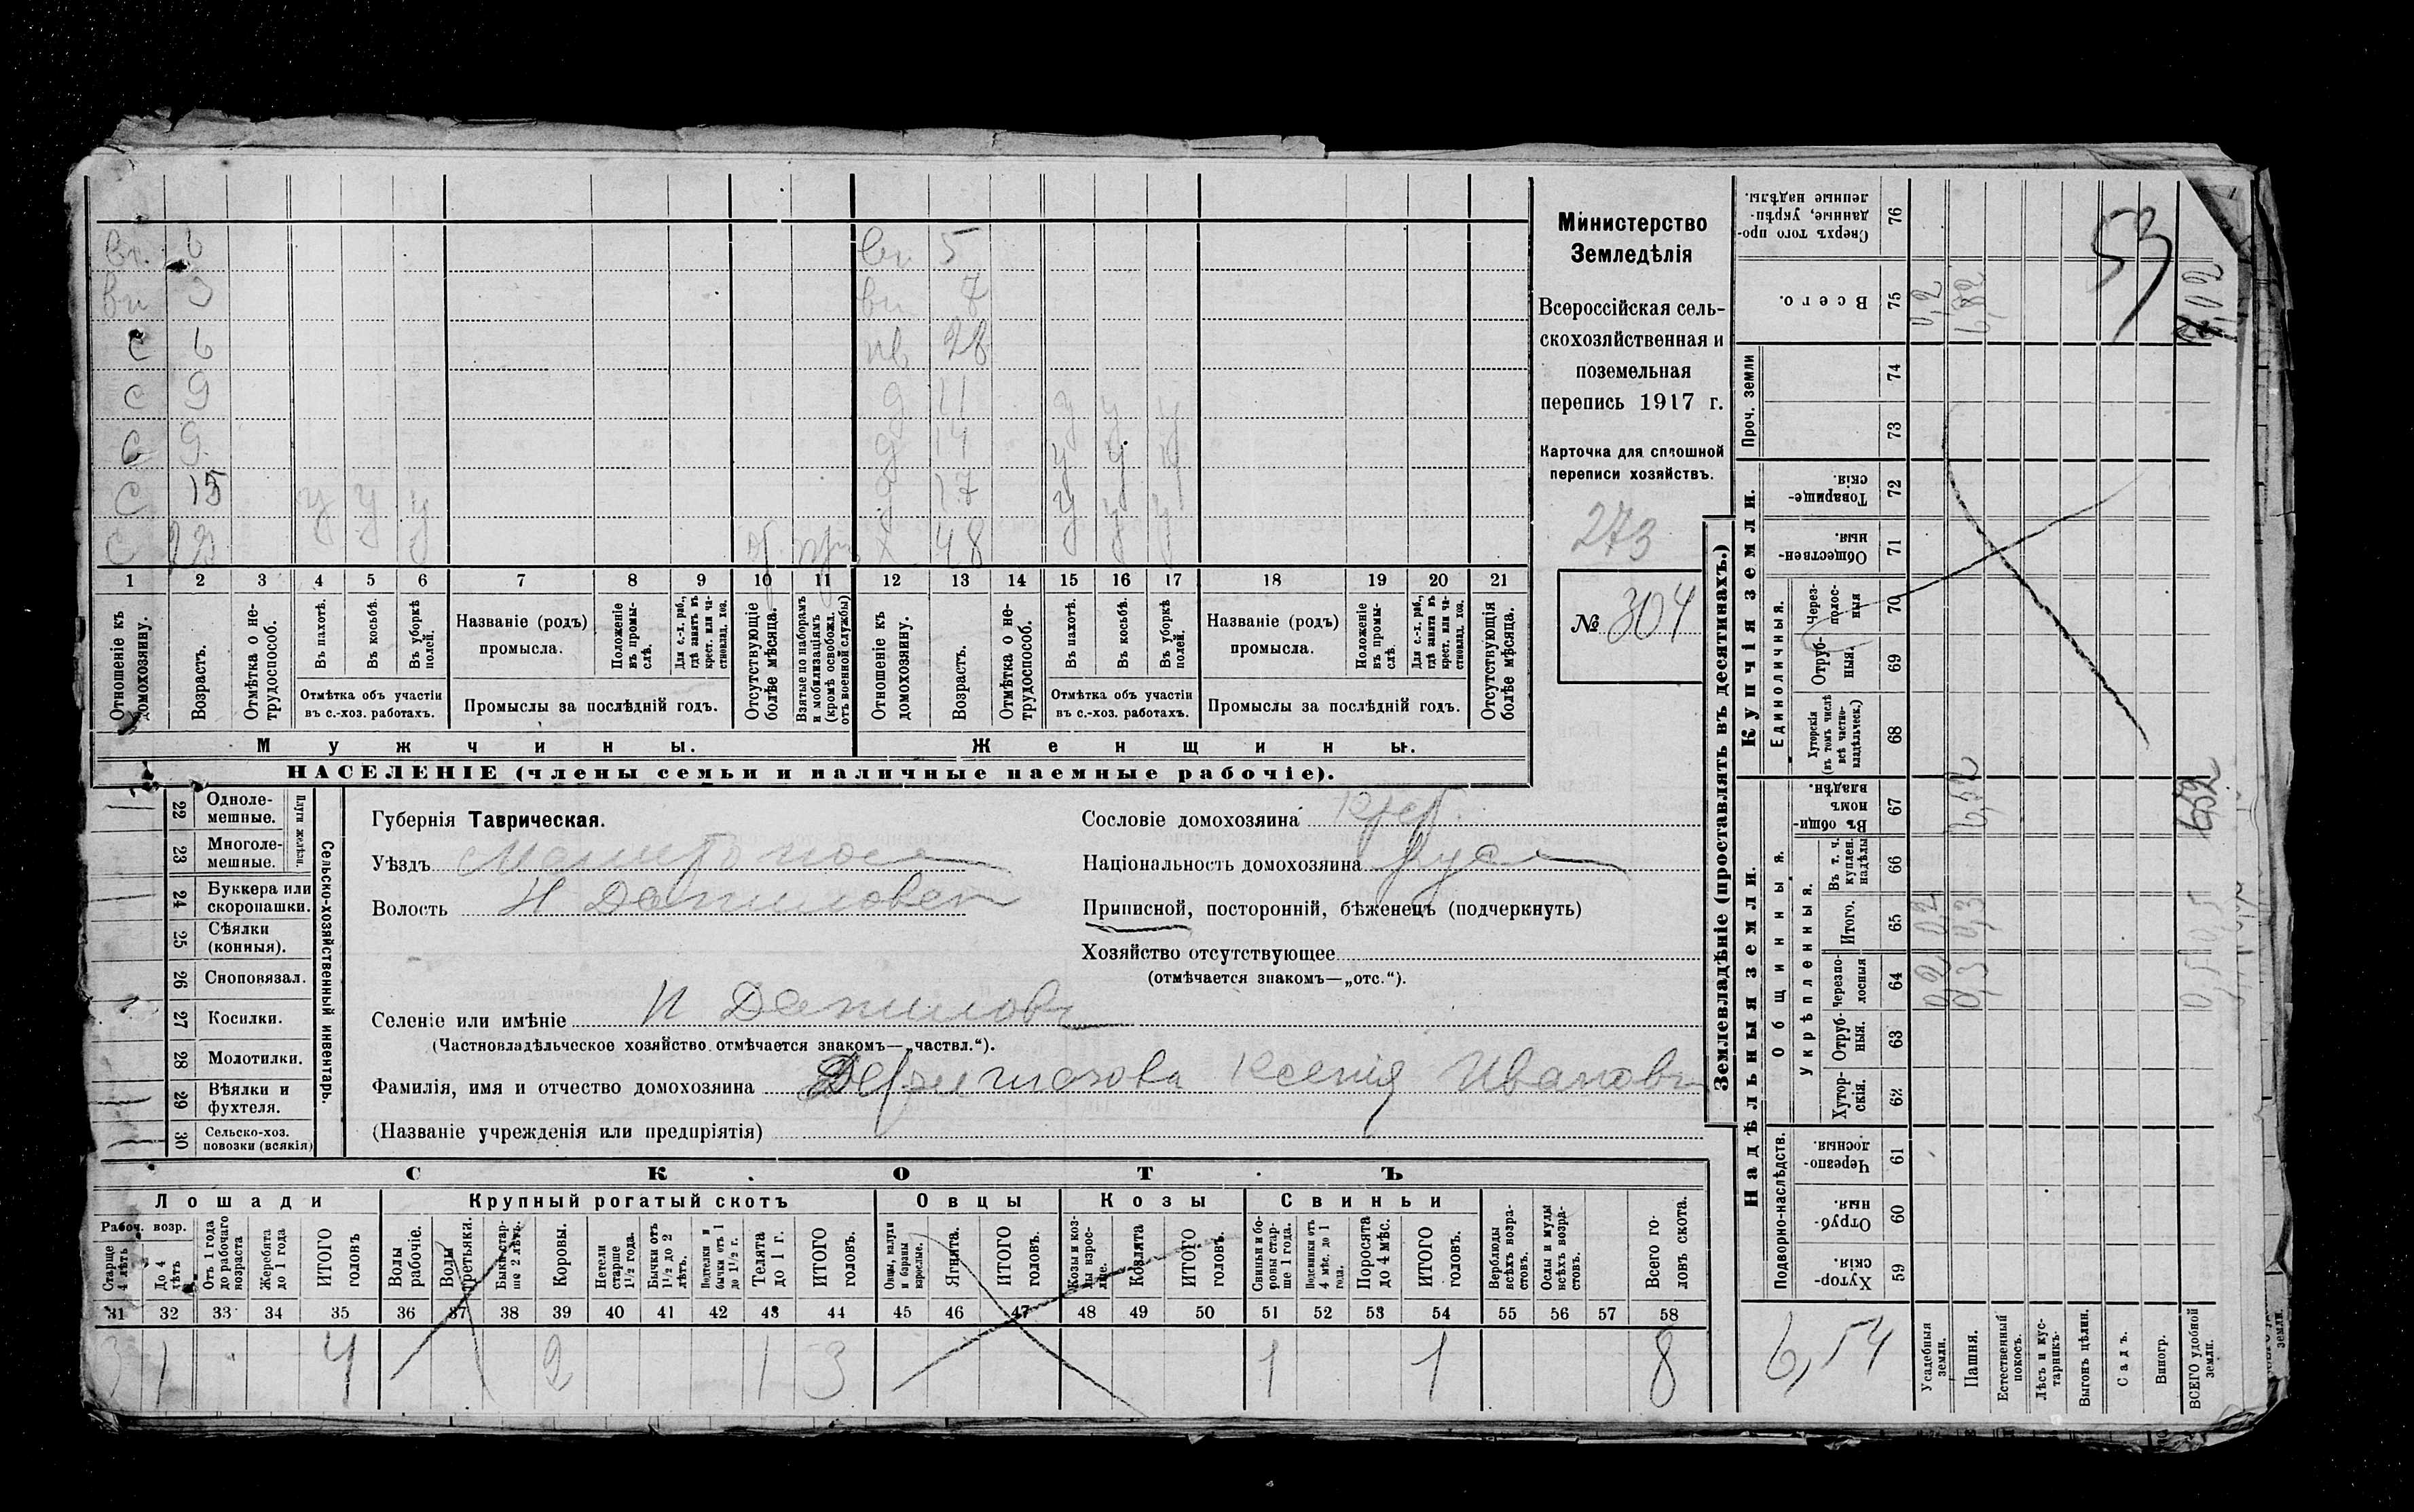 вп. 6 вп 5
вп 3 вп 7
с 6 нв 28
с 9 д 11 у у у
с 9 д 14 у у у
с 15 у у у д 17 у у у
с 22 х 48
1 2 3 4 5 6 7 8 9 10 11 12 13 14 15 16 17 18 19 20 21
Отношеніе къ домохозяину.
Возрастъ.
Отмѣтка о не-трудоспособ.
Въ пахотѣ.
Въ косьбѣ.
Въ уборкѣ полей.
Отмѣтка объ участіи
въ с.-хоз. работахъ.
Названіе (родъ)
промысла.
Положеніе въ промы-слѣ.
Для с.-х. раб., гдѣ занятъ въ крест. или ча-стновлад. хоз.
Промыслы за послѣдній годъ.
Отсутствующіе болѣе мѣсяца.
Взятые по наборамъ и мобилизаціямъ (кромѣ освобожд. отъ военной службы)
Отношеніе къ домохозяину.
Возрастъ.
Отмѣтка о не-трудоспособ.
Въ пахотѣ.
Въ косьбѣ.
Въ уборкѣ полей.
Отмѣтка объ участіи
въ с.-хоз. работахъ.
Названіе (родъ)
промысла.
Положеніе въ промы-слѣ.
Для с.-х. раб., гдѣ занята въ крест. или ча-стновлад. хоз.
Промыслы за послѣдній годъ.
Отсутствующія болѣе мѣсяца.
Мужчины. Женщины.
НАСЕЛЕНІЕ (члены семьи и наличные наемные рабочіе).
Министерство
Земледѣлія
Всероссійская сель-
скохозяйственная и
поземельная
перепись 1917 г.
Карточка для сплошной
переписи хозяйствъ.
273
№ 304
22 Одноле-мешные.
23 Многоле-мешные.
Плуги желѣзн.
24 Буккера или скоропашки.
25 Сѣялки (конныя).
26 Сноповязал.
27 Косилки.
28 Молотилки.
29 Вѣялки и фухтеля.
30 Сельско-хоз. повозки (всякія)
Сельско-хозяйственный инвентарь.
Губернія Таврическая.
Уѣздъ
Волость Н Даниловск
Селеніе или имѣніе Н Даниловк
(Частновладѣльческое хозяйство отмѣчается знакомъ—„частвл.“).
Фамилія, имя и отчество домохозяина Ксенія Ивановн
(Названіе учрежденія или предпріятія)
Сословіе домохозяина крест.
Національность домохозяина русск
Приписной, посторонній, бѣженецъ (подчеркнуть)
Хозяйство отсутствующее
(отмѣчается знакомъ—„отс.“).
СКОТЪ
Лошади Крупный рогатый скотъ Овцы Козы Свиньи
Рабоч. возр.
Старше 4 лѣтъ
До 4 лѣтъ
Отъ 1 года до рабочаго возраста
Жеребята до 1 года
ИТОГО головъ
Волы рабочіе.
Волы третьяки.
Быки стар-ше 2 лѣтъ.
Коровы.
Нетели старше 1½ года.
Бычки отъ 1½ до 2 лѣтъ.
Подтелки и бычки отъ 1 до 1½ г.
Телята до 1 г.
ИТОГО головъ.
Овцы, валухи и бараны взрослые.
Ягнята.
ИТОГО головъ.
Козы и коз-лы взрос-лые.
Козлята
ИТОГО головъ.
Свиньи и бо-ровы стар-ше 1 года.
Подсвинки отъ 4 мѣс. до 1 года.
Поросята до 4 мѣс.
ИТОГО головъ.
Верблюды всѣхъ возра-стовъ.
Ослы и мулы всѣхъ возра-стовъ.
Всего го-ловъ скота.
31 32 33 34 35 36 37 38 39 40 41 42 43 44 45 46 47 48 49 50 51 52 53 54 55 56 57 58
3 1 4 2 1 3 1 1 8
Землевладѣніе (проставлять въ десятинахъ.)
Надѣльныя земли. Купчія земли. Проч. земли
Подворно-наслѣдств.
Общинныя.
Укрѣпленныя.
Единоличныя.
Хутор-скія. 59
Отруб-ныя. 60
Черезпо-лосныя. 61
Хутор-скія. 62
Отруб-ныя. 63
Черезпо-лосныя 64
Итого. 65
Въ т. ч. куплен. надѣлы 66
Въ общи-номъ владѣн. 67
Хуторскія (въ томъ числѣ всѣ частно-владѣльческ.) 68
Отруб-ныя. 69
Через-полос-ныя 70
Обществен-ныя. 71
Товарище-скія. 72
73
74
Всего. 75
Сверхъ того про-данные, укрѣп-ленные надѣлы. 76
Усадебныя земли. 0,2 0,2 0,2
Пашня. 0,3 0,3 6,52 6,82
Естественный покосъ.
Лѣсъ и кус-тарникъ.
Выгонъ цѣлин.
Садъ.
Виногр.
ВСЕГО удобной земли. 0,5 0,5 6,52 7,02
6,54
53